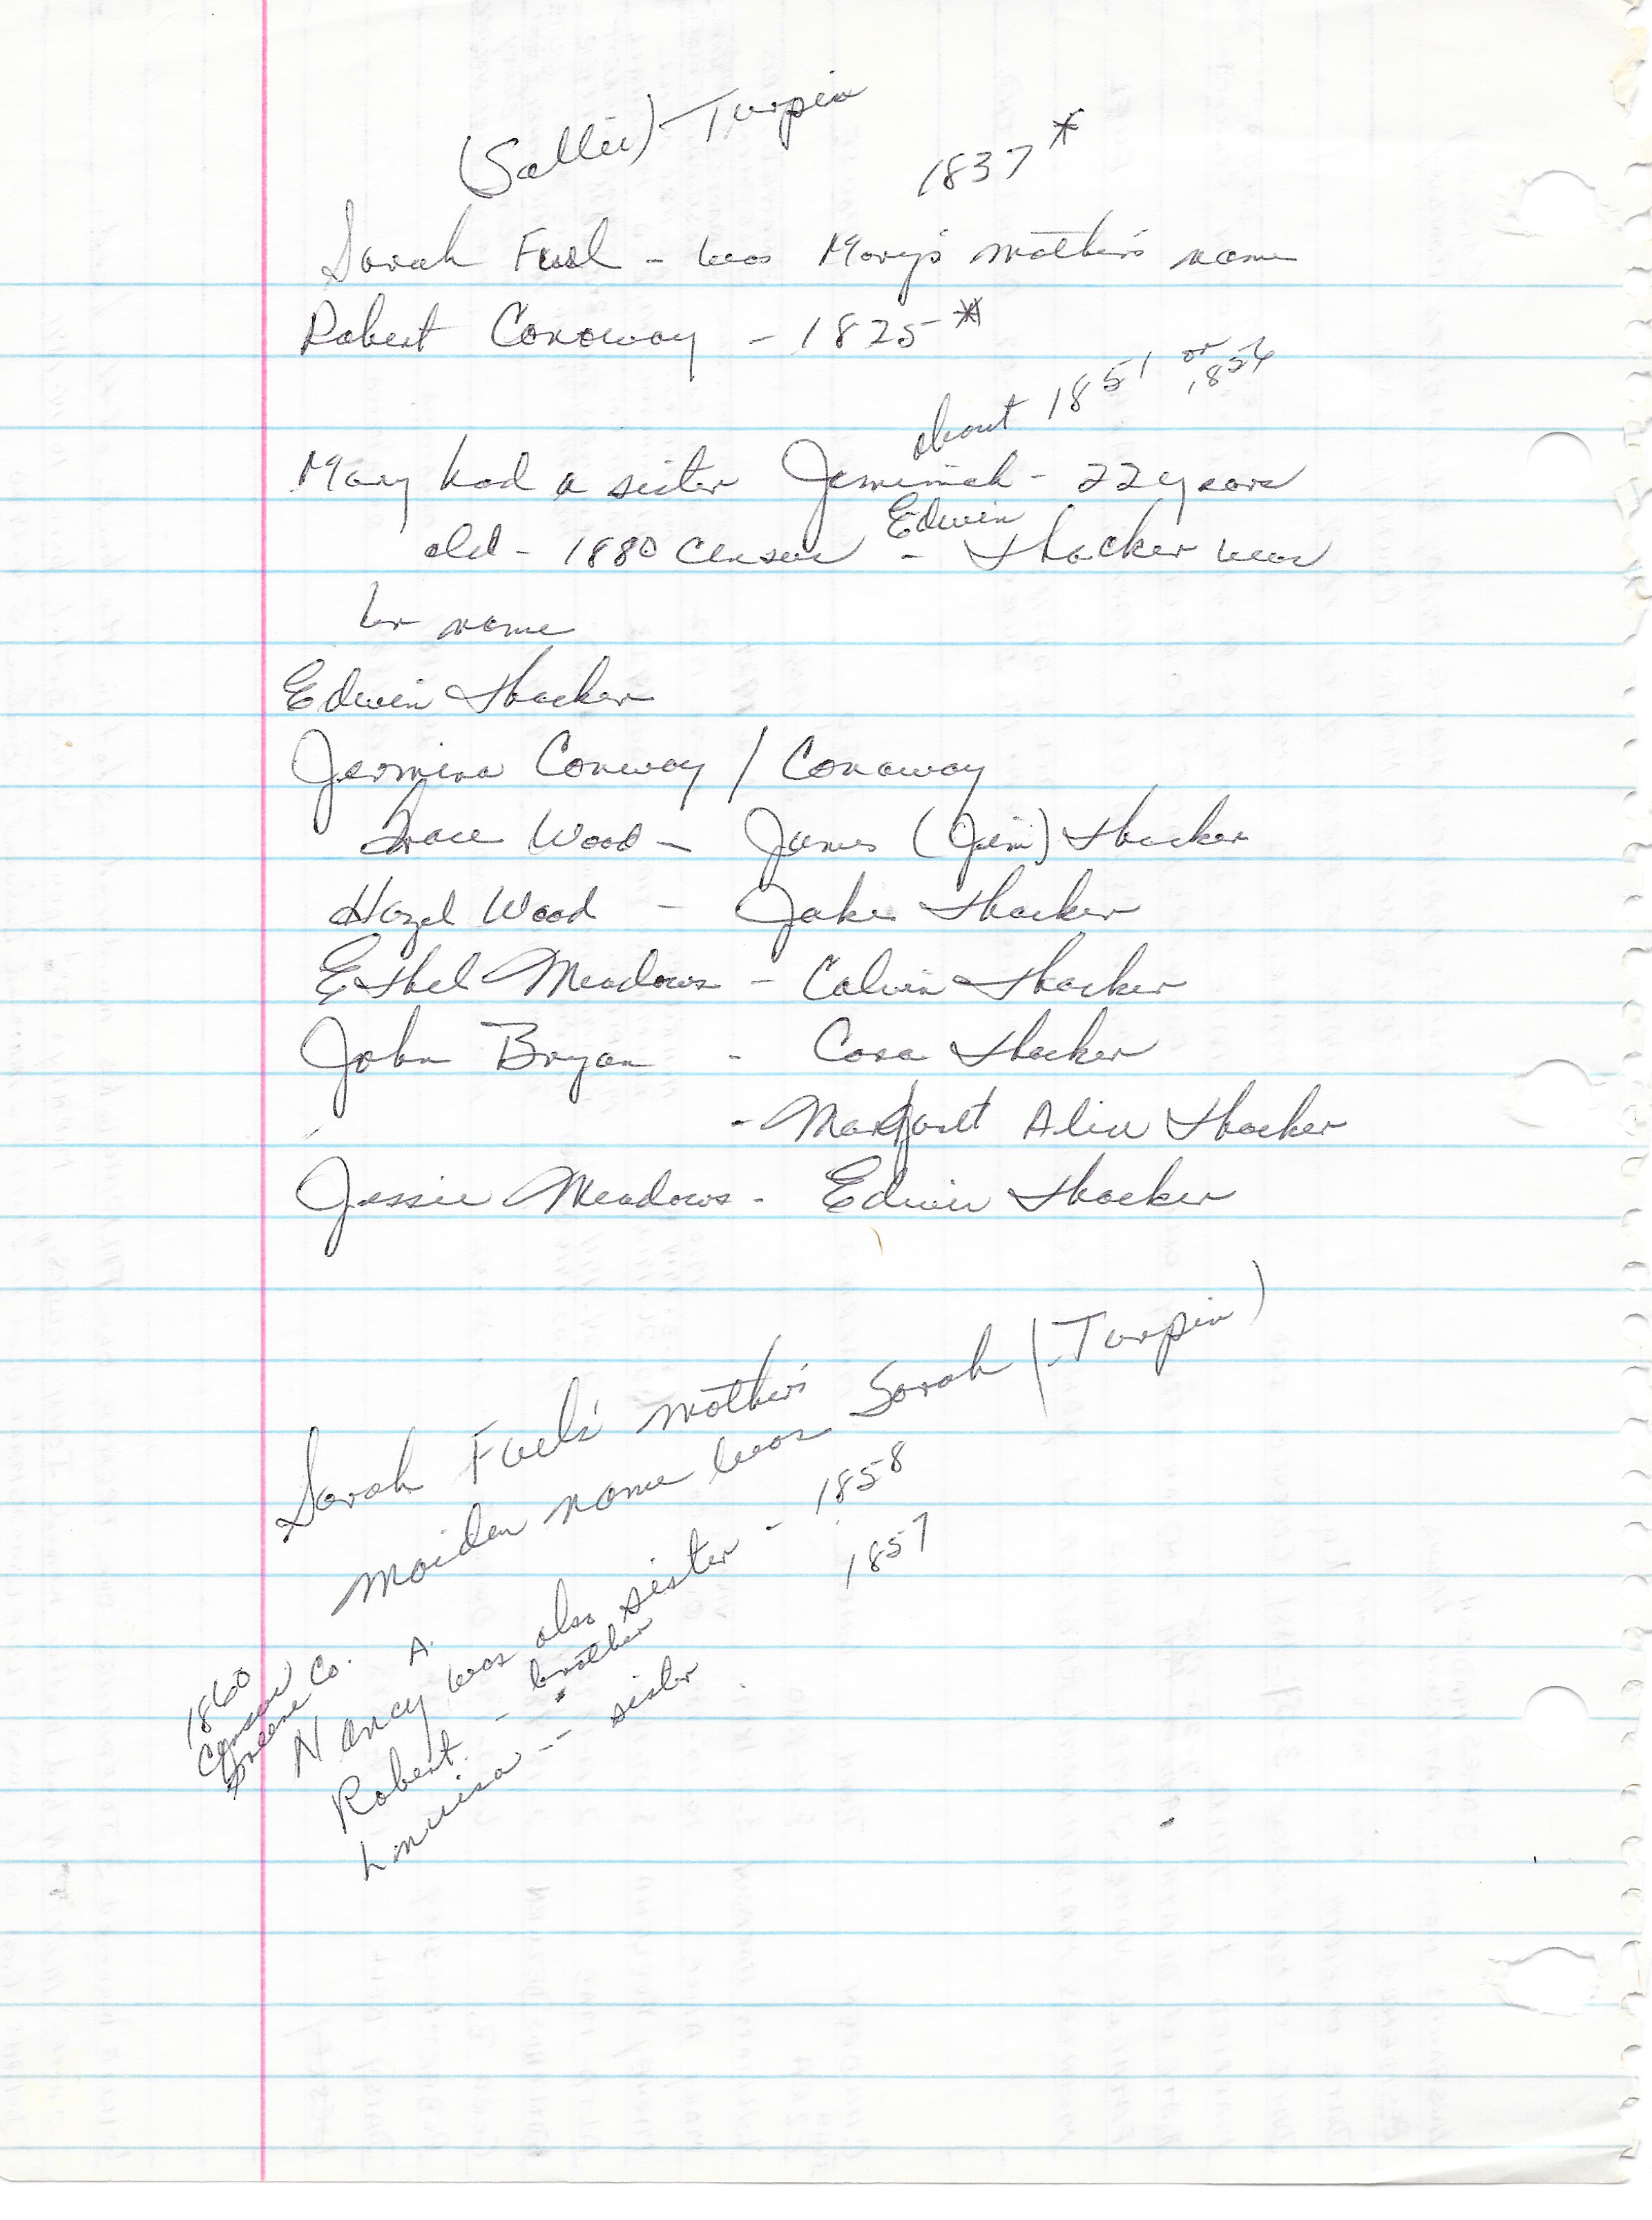 (Sallie) Turpin
1837 *
Sarah Fuel - was Mary's mother's name
Robert Conoway - 1825 *
about 1851 or 1854
Mary had a sister Jemimah - 22 years
Edwin
old - 1880 Census - Thacker was
her name
Edwin Thacker
Jermina Conway / Conaway
Grace Wood - James (Jim) Thacker
Hazel Wood - Jake Thacker
Ethel Meadows - Calvin Thacker
John Bryan - Cora Thacker
- Margaret Alice Thacker
Jessie Meadows - Edwin Thacker
Sarah Fuel's mother's
maiden name was Sarah (Turpin)
1860
Census
Greene Co.
A.
Nancy was also sister - 1858
Robert - brother 1857
Louisa -- sister